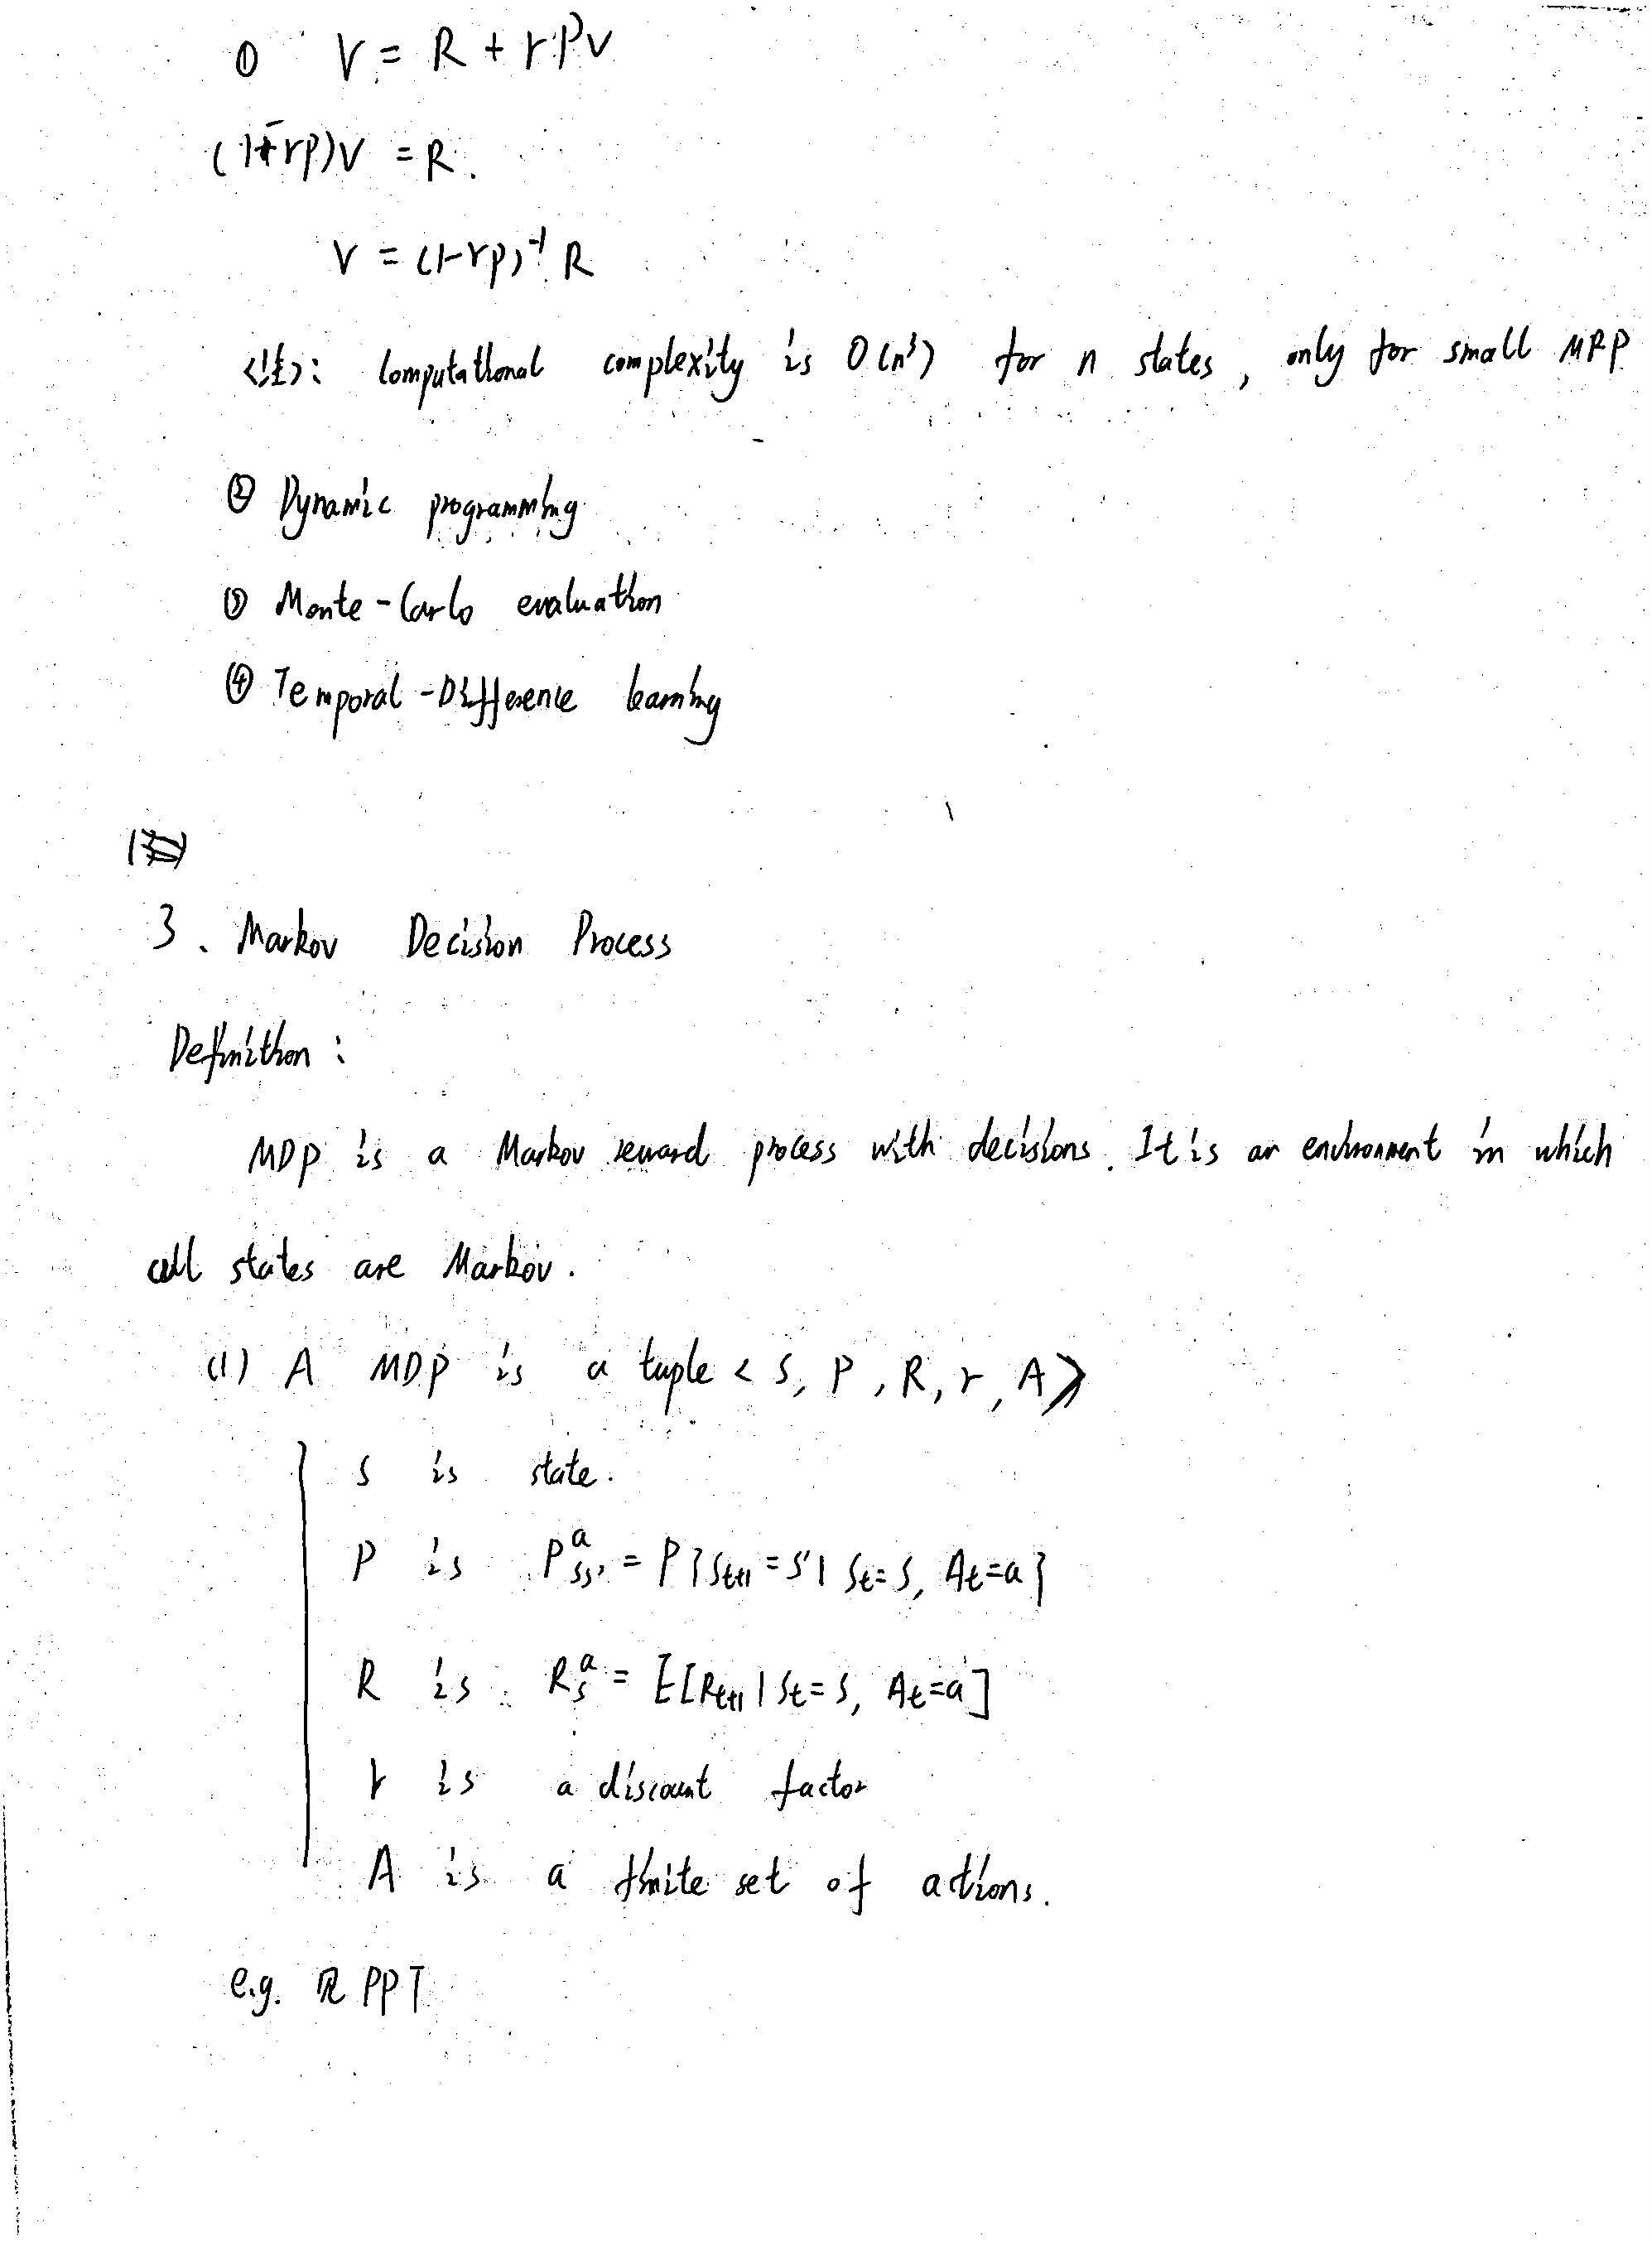 ① V = R + rPv
(1-rp)v = R.
v = (1-rp)⁻¹ R
<注>: Computational complexity is O(n³) for n states, only for small MRP
② Dynamic programming
③ Monte-Carlo evaluation
④ Temporal-Difference learning
3、Markov Decision Process
Definition:
MDP is a Markov reward process with decisions. It is an environment in which
all states are Markov.
(1) A MDP is a tuple < S, P, R, r, A>
S is state.
P is P^a_ss' = P{S_t+1 = S' | S_t = S, A_t = a}
R is R^a_s = E[R_t+1 | S_t = S, A_t = a]
r is a discount factor
A is a finite set of actions.
e.g. 见 PPT